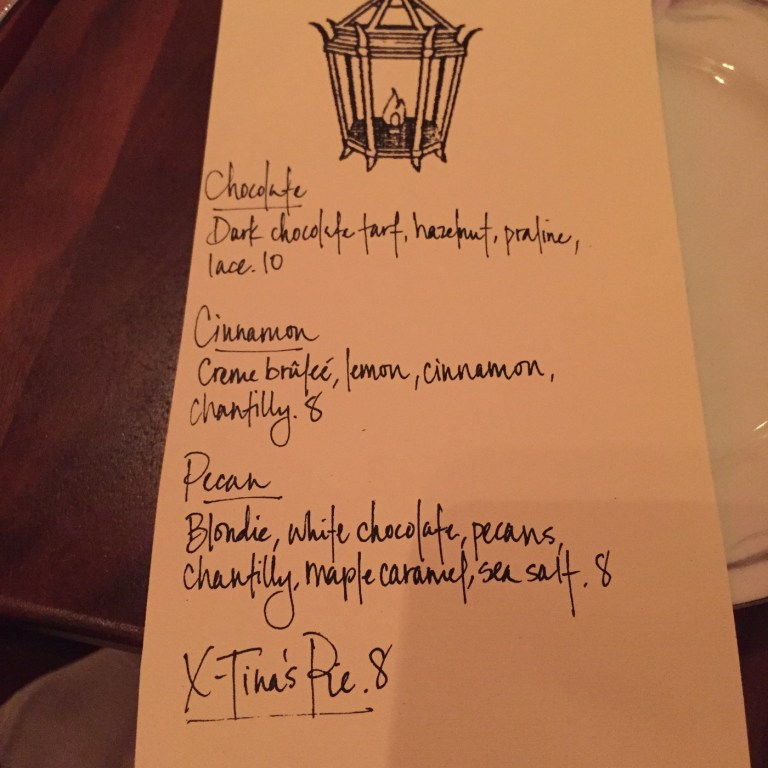 Chocolate
Dark chocolate tart, hazelnut, praline,
lace. 10
Cinnamon
Creme brûleé, lemon, cinnamon,
chantilly. 8
Pecan
Blondie, white chocolate, pecans,
chantilly, maple caramel, sea salt. 8
X-Tina's Pie. 8